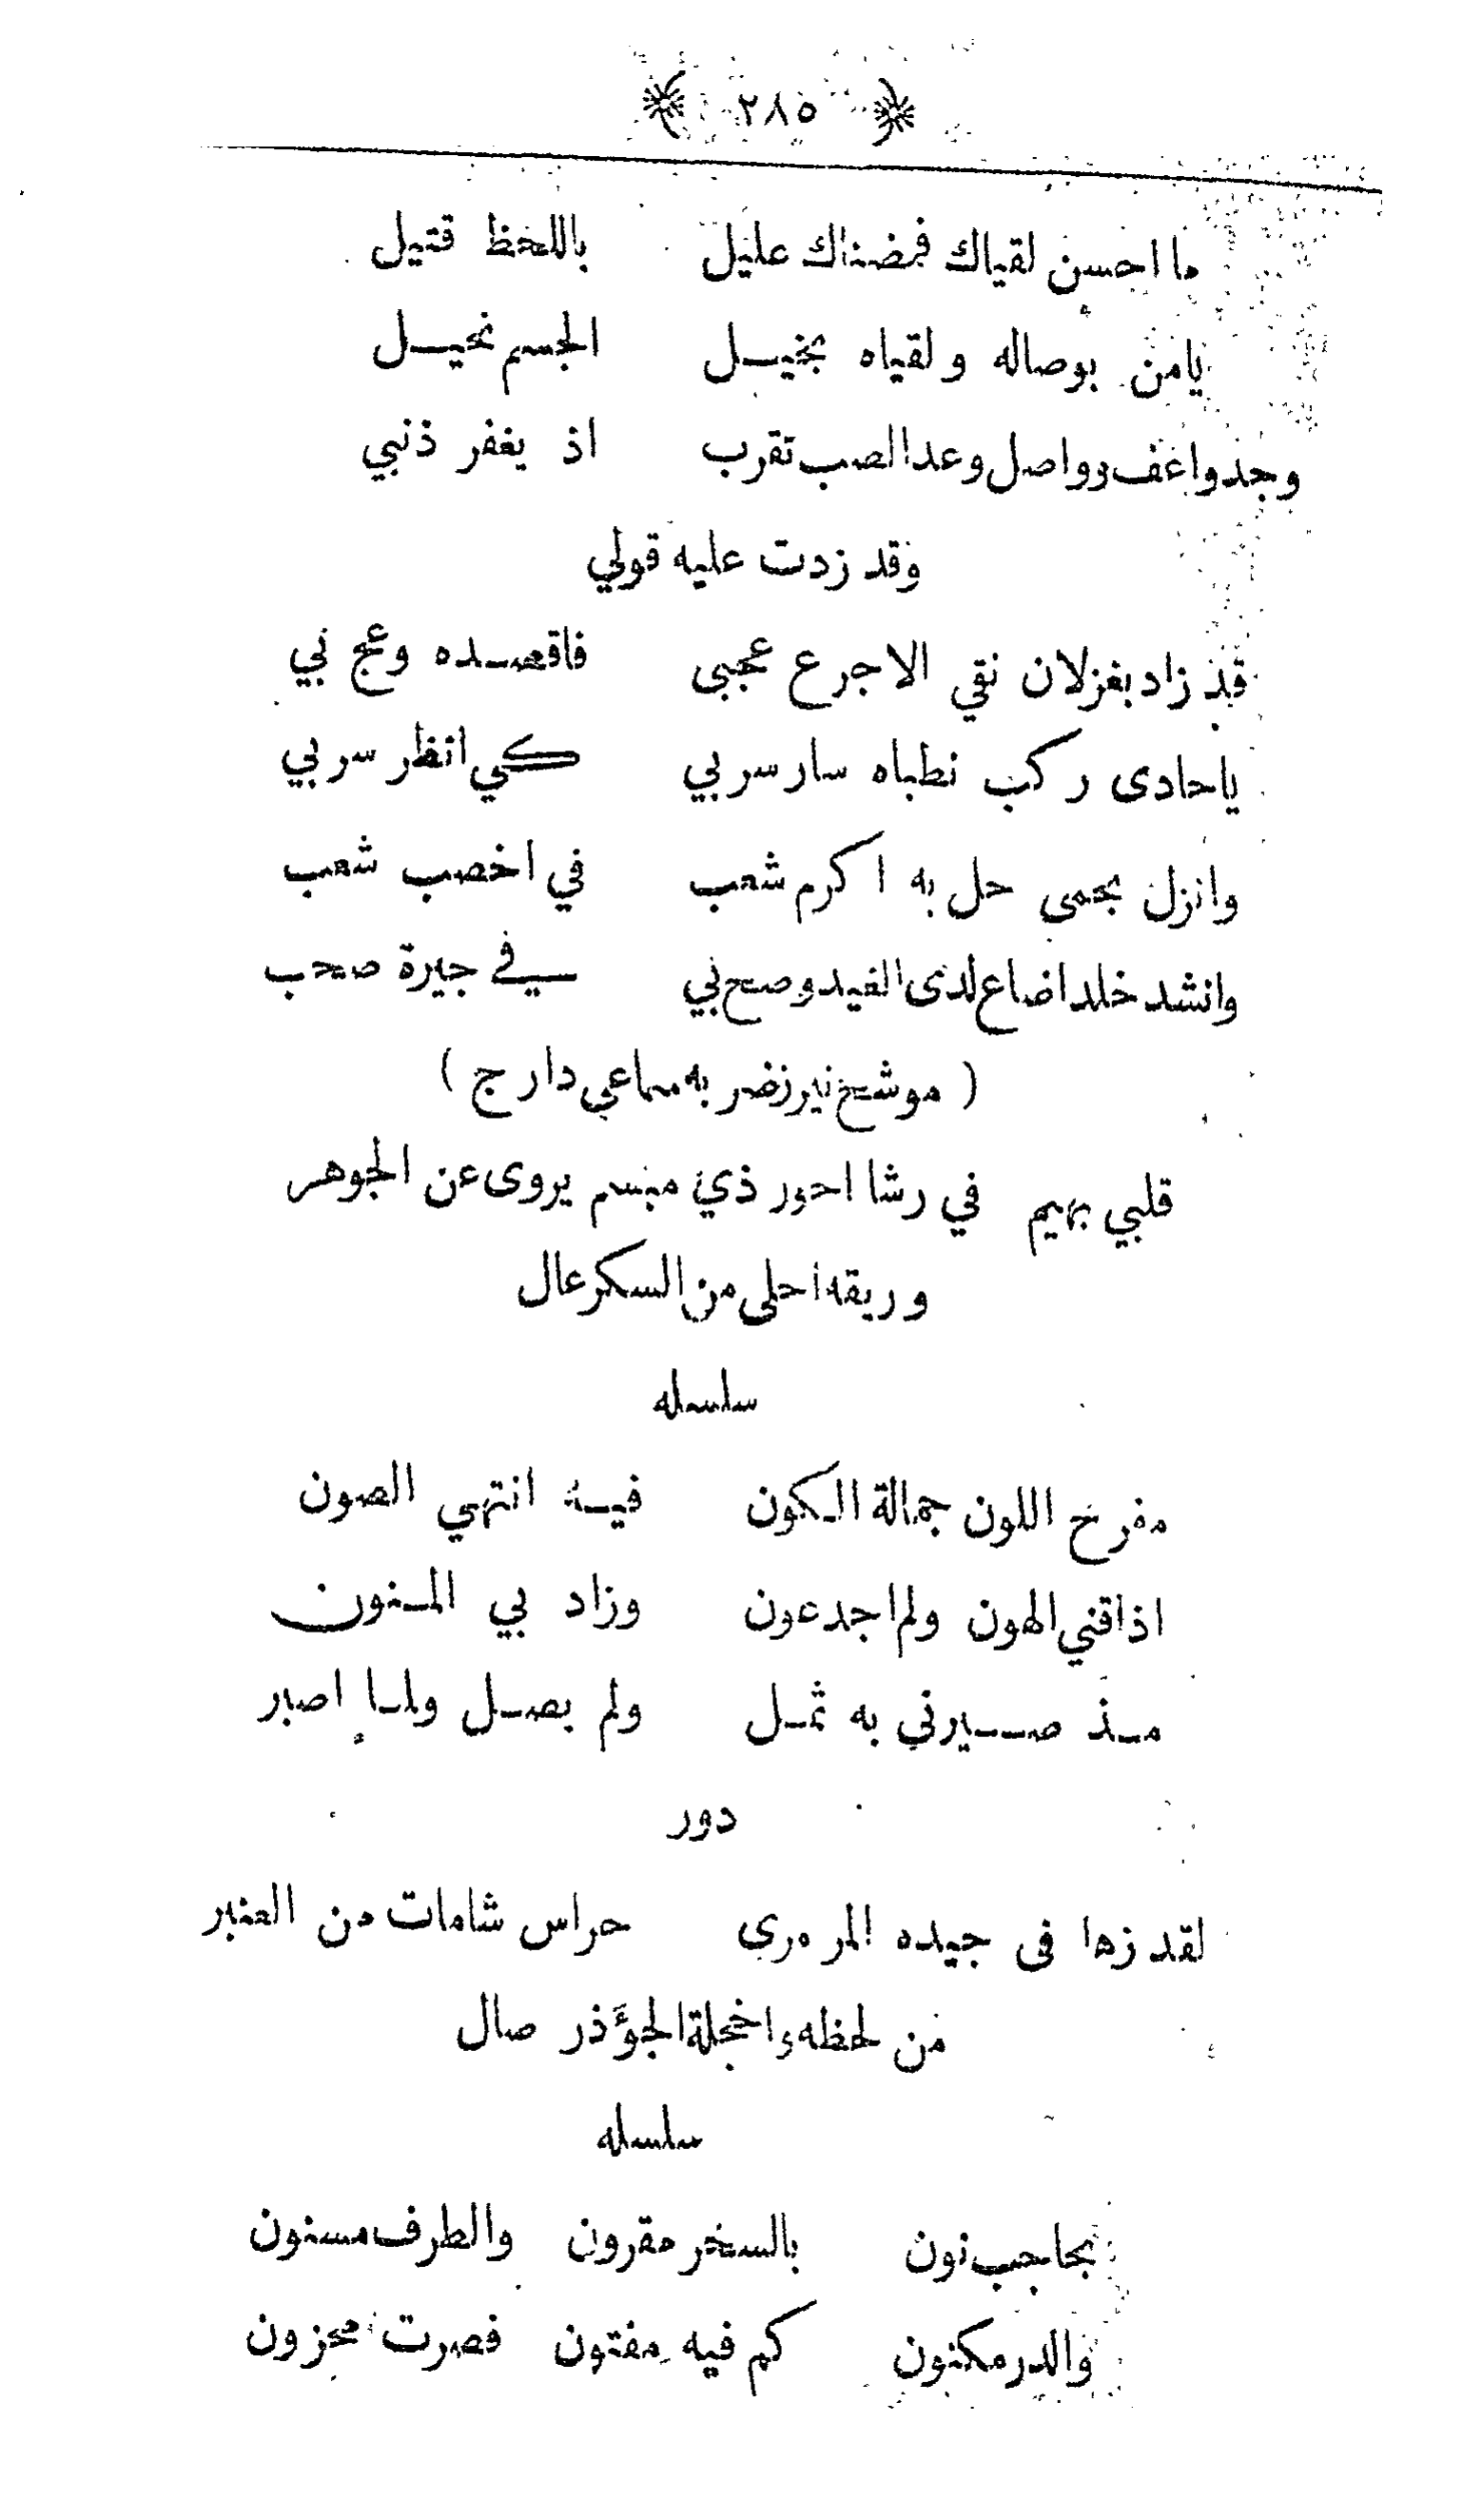 ٢٨٥
ما احسن لقياك فمضناك عليل باللحظ قتيل
يامن بوصاله ولقياه بخيل الجسم نحيل
وجد واعف وواصل وعدا الصب تقرب اذ يغفر ذنبي
وقد زدت عليه قولي
قد زاد بغزلان نقي الاجرع عجبى فاقصده وعج بي
ياحادى ركب نظباه سار سربي كي انظر سربي
وانزل بحمى حل به اكرم شعب في اخصب شعب
وانشد خلدا ضاع لدى الغيد وصح بي في جيرة صحب
(موشح نيرز ضربه سماعي دارج)
قلبي يهيم في رشا احور ذي مبسم يروى عن الجوهر
وريقه احلى من السكر عال
سلسله
مفرح اللون جمالة الكون فيه انتهي الصون
اذاقني الهون ولم اجد عون وزاد بي المنون
مذ صيرني به ثمل ولم يصل ولما اصبر
دور
لقد زها فى جيده المرمرى حراس شامات من العنبر
من لحظه واخجلة الجؤذر صال
سلسله
بحاجب نون بالسحر مقرون والطرف مسنون
والدر مكنون كم فيه مفتون فصرت محزون